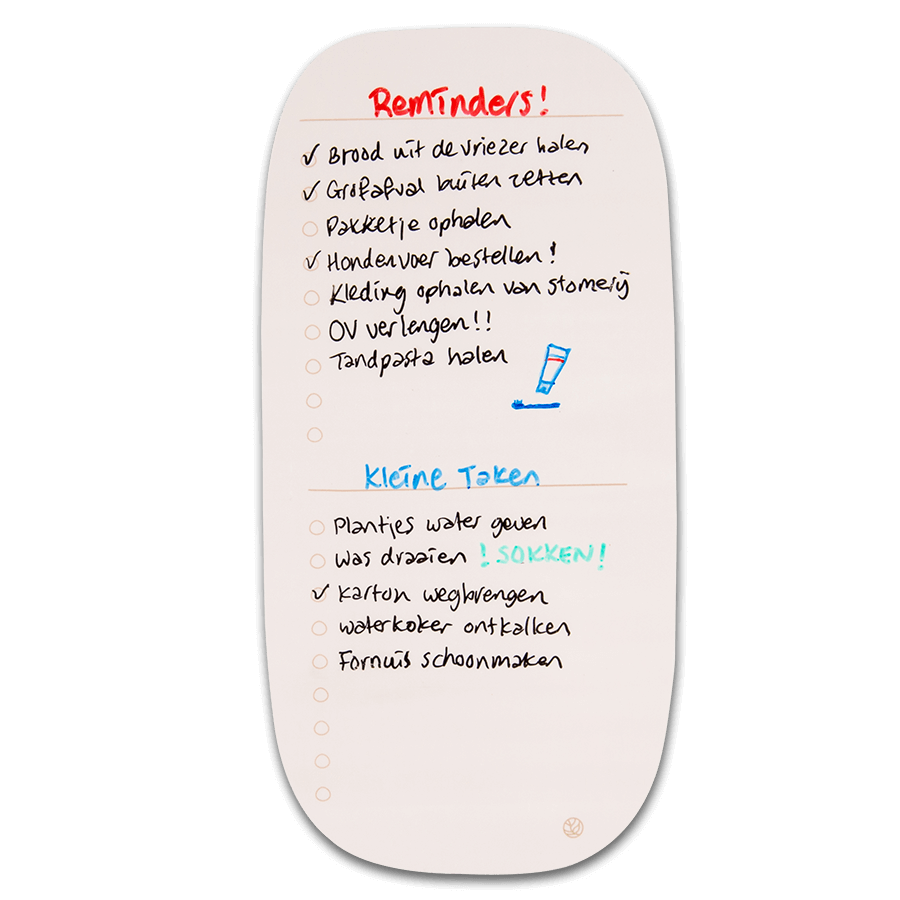 Reminders!
✓ Brood uit de vriezer halen
✓ Grofafval buiten zetten
Pakketje ophalen
✓ Hondenvoer bestellen!
Kleding ophalen van stomerij
OV verlengen!!
Tandpasta halen
Kleine Taken
Plantjes water geven
Was draaien !SOKKEN!
✓ Karton wegbrengen
waterkoker ontkalken
Fornuis schoonmaken